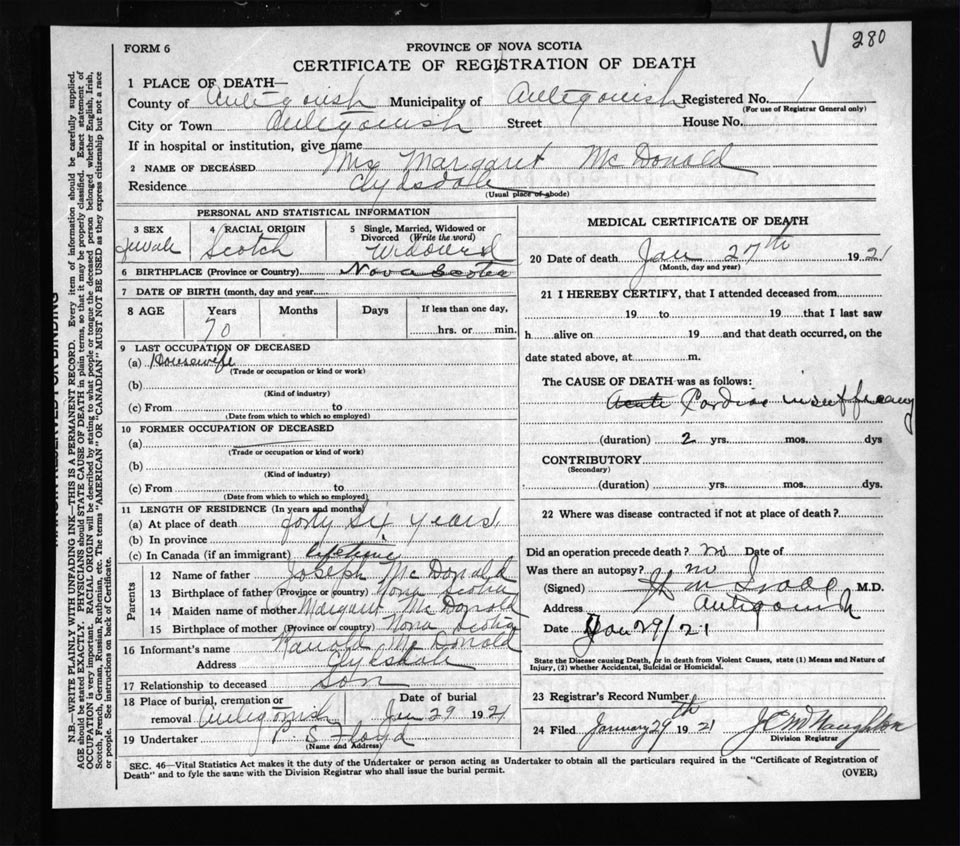 280
FORM 6
PROVINCE OF NOVA SCOTIA
CERTIFICATE OF REGISTRATION OF DEATH
1 PLACE OF DEATH—
County of Antigonish Municipality of Antigonish Registered No. 1
(For use of Registrar General only)
City or Town Antigonish Street House No.
If in hospital or institution, give name
2 NAME OF DECEASED Mrs Margaret McDonald
Residence Clydsdale
(Usual place of abode)
PERSONAL AND STATISTICAL INFORMATION
3 SEX 4 RACIAL ORIGIN 5 Single, Married, Widowed or
Divorced (Write the word)
Female Scotch Widowed
6 BIRTHPLACE (Province or Country) Nova Scotia
7 DATE OF BIRTH (month, day and year
8 AGE Years Months Days If less than one day,
70 hrs. or min.
9 LAST OCCUPATION OF DECEASED
(a) Housewife
(Trade or occupation or kind or work)
(b)
(Kind of industry)
(c) From to
(Date from which to which so employed)
10 FORMER OCCUPATION OF DECEASED
(a)
(Trade or occupation or kind of work)
(b)
(Kind of industry)
(c) From to
(Date from which to which so employed)
11 LENGTH OF RESIDENCE (In years and months)
(a) At place of death forty six years
(b) In province
(c) In Canada (if an immigrant) lifetime
Parents
12 Name of father Joseph McDonald
13 Birthplace of father (Province or country) Nova Scotia
14 Maiden name of mother Margaret McDonald
15 Birthplace of mother (Province or country) Nova Scotia
16 Informant's name McDonald
Address Clydsdale
17 Relationship to deceased Son
18 Place of burial, cremation or Date of burial
removal Antigonish Jan 29 1921
19 Undertaker P S Floyd
(Name and Address)
MEDICAL CERTIFICATE OF DEATH
20 Date of death Jan 27th 1921
(Month, day and year)
21 I HEREBY CERTIFY, that I attended deceased from
19 to 19 that I last saw
h alive on 19 and that death occurred, on the
date stated above, at m.
The CAUSE OF DEATH was as follows:
Acute Cardiac insufficiency
(duration) 2 yrs. mos. dys
CONTRIBUTORY
(Secondary)
(duration) yrs. mos. dys.
22 Where was disease contracted if not at place of death?
Did an operation precede death? no Date of
Was there an autopsy? no
(Signed) M.D.
Address Antigonish
Date Jan 29/21
State the Disease causing Death, or in death from Violent Causes, state (1) Means and Nature of
Injury, (2) whether Accidental, Suicidal or Homicidal.
23 Registrar's Record Number
24 Filed January 29th 1921 McNaughton
Division Registrar
SEC. 46—Vital Statistics Act makes it the duty of the Undertaker or person acting as Undertaker to obtain all the particulars required in the "Certificate of Registration of
Death" and to fyle the same with the Division Registrar who shall issue the burial permit. (OVER)
N.B.—WRITE PLAINLY WITH UNFADING INK—THIS IS A PERMANENT RECORD. Every item of information should be carefully supplied.
AGE should be stated EXACTLY. PHYSICIANS should STATE CAUSE OF DEATH in plain terms, so that it may be properly classified. Exact statement of
OCCUPATION is very important. RACIAL ORIGIN will be described by stating to what people or tongue the deceased person belonged whether English, Irish,
Scotch, French, German, Russian, Ruthenian, etc. The terms "AMERICAN" OR "CANADIAN" MUST NOT BE USED as they express citizenship but not a race
or people. See instructions on back of Certificate.